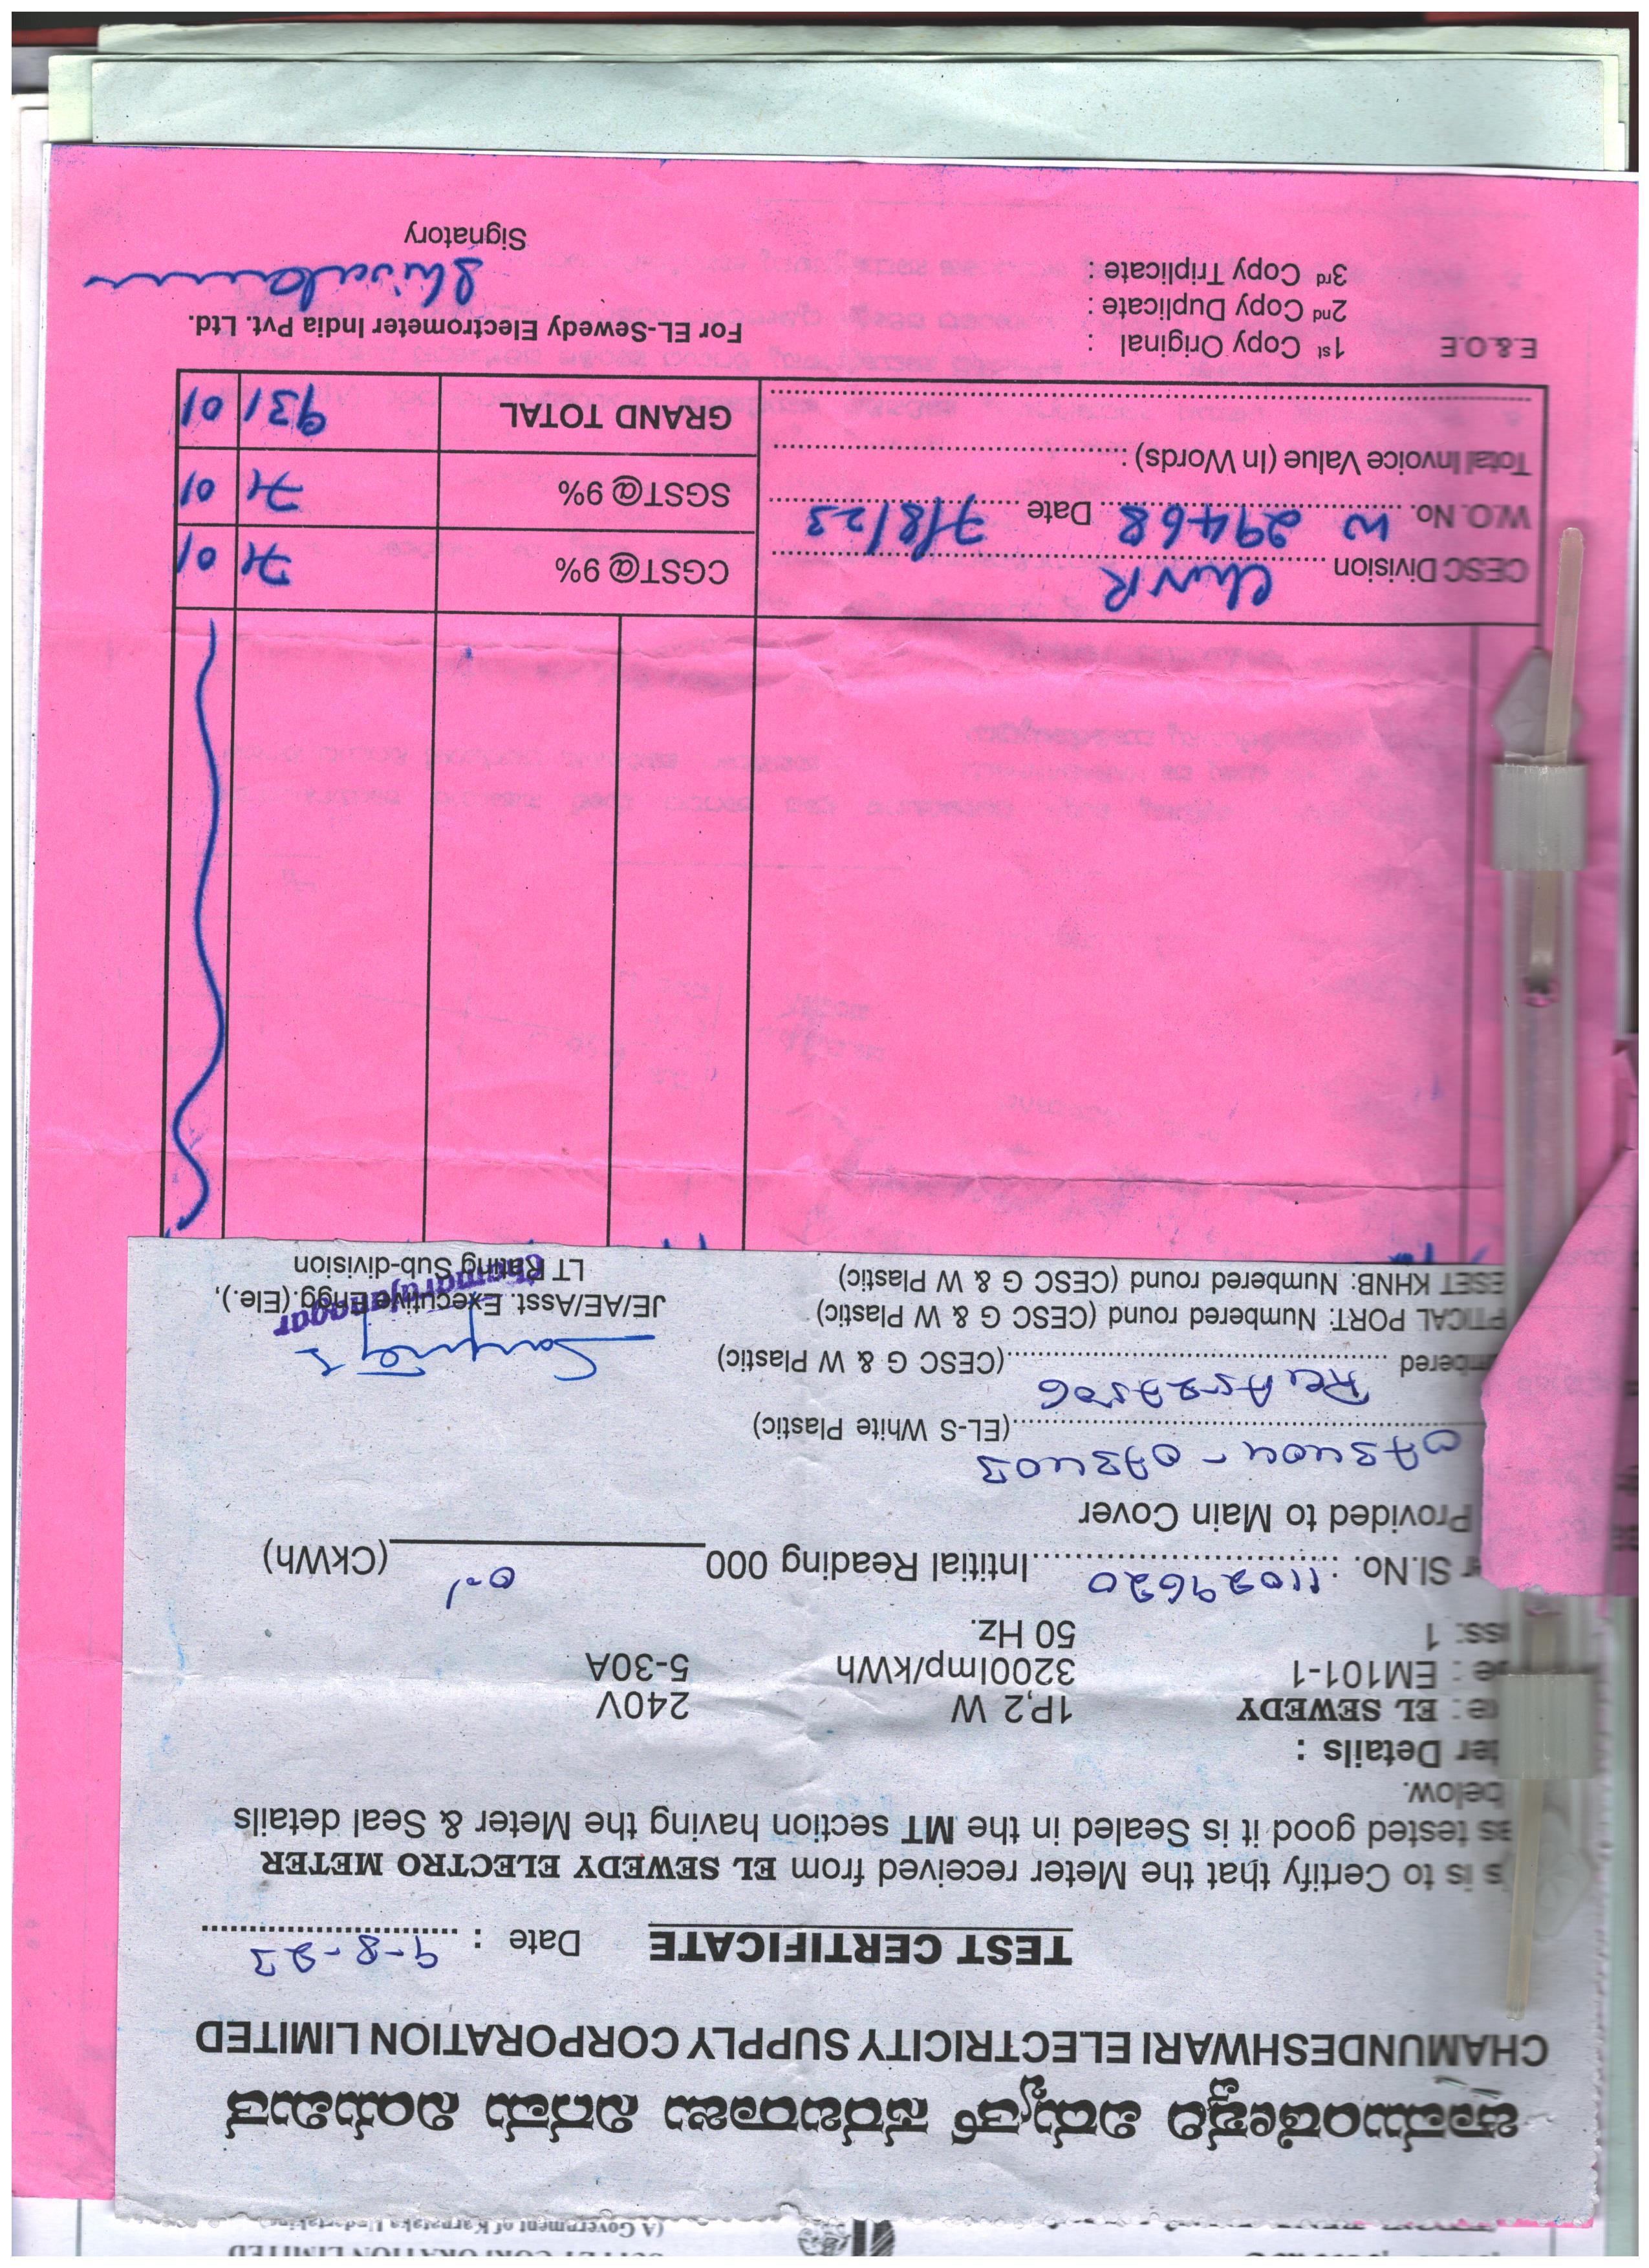 (A Government of Karnataka Undertaking)
ಚಾಮುಂಡೇಶ್ವರಿ ವಿದ್ಯುತ್ ಸರಬರಾಜು ನಿಗಮ ನಿಯಮಿತ
CHAMUNDESHWARI ELECTRICITY SUPPLY CORPORATION LIMITED
TEST CERTIFICATE Date : 9-8-23
s is to Certify that the Meter received from EL SEWEDY ELECTRO METER
as tested good it is Sealed in the MT section having the Meter & Seal details
below.
ter Details :
ke : EL SEWEDY 1P,2 W 240V
pe : EM101-1 3200Imp/kWh 5-30A
ass: 1 50 Hz.
r Sl.No. : 11029620 Intitial Reading 000 (CkWh)
Provided to Main Cover
073404 - 073403 (EL-S White Plastic)
mbered (CESC G & W Plastic)
PTICAL PORT: Numbered round (CESC G & W Plastic)
ESET KHNB: Numbered round (CESC G & W Plastic)
JE/AE/Asst. Executive Engg.(Ele.),
LT Rating Sub-division
Chamarajanagar
CESC Division ChNR CGST@ 9% 71 01
W.O. No. W 29468 Date 7/8/23 SGST@ 9% 71 01
Total Invoice Value (In Words) :
GRAND TOTAL 931 01
E.&.O.E 1st Copy Original :
2nd Copy Duplicate :
3rd Copy Triplicate :
For EL-Sewedy Electrometer India Pvt. Ltd.
Signatory